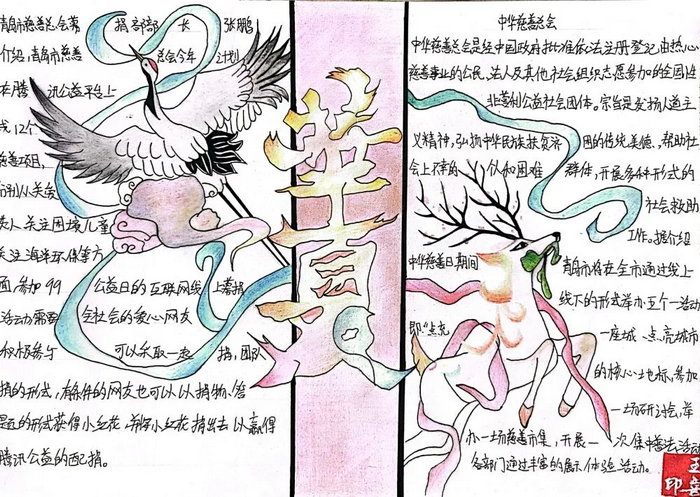 青岛市慈善总会募捐部部长张鹏
介绍,青岛市慈善总会今年计划
在腾讯公益平台上
12个
关爱
类人、关注困境儿童
关注海洋环保等方
面,参加99公益日的互联网线上募捐
活动需要全社会的爱心网友
积极参与 可以采取一起捐,团队
捐的形式,有条件的网友也可以以捐物、答
题的形式获得小红花,并将小红花捐出去以赢得
腾讯公益的配捐。
華夏
中华慈善总会
中华慈善总会是经中国政府批准依法注册登记,由热心
慈善事业的公民、法人及其他社会组织志愿参加的全国性
非营利公益社会团体。宗旨是发扬人道主
义精神,弘扬中华民族扶贫济困的传统美德、帮助社
会上不幸的个人和困难群体,开展多种形式的
社会救助
工作。据介绍
中华慈善日期间 青岛市将在全市通过线上
线下的形式举办五个一活动
即“点亮一座城、点亮城市
的核心地标,参加
一场研讨会,举
办一场慈善市集,开展一次集中普法活动
各部门通过丰富的展示、体验活动。